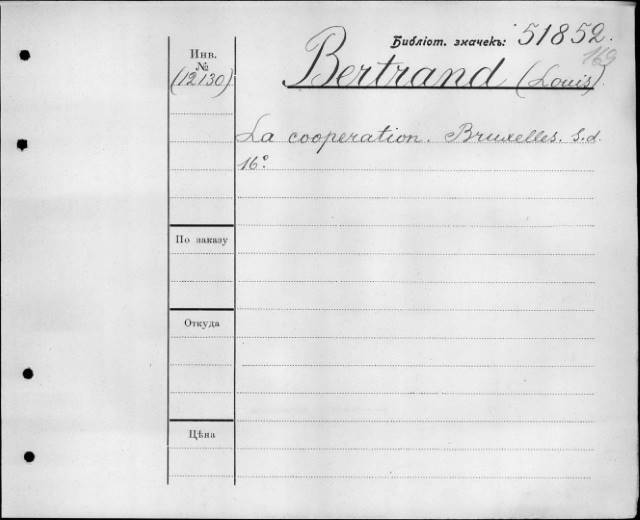 Библіот. значекъ: 51852.
169
Инв.
№
(12130)
Bertrand (Louis).
La cooperation. Bruxelles. S.d.
16°.
По заказу
Откуда
Цѣна